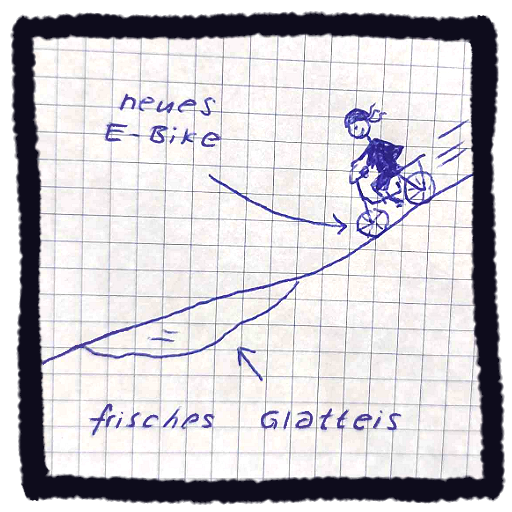 neues
E-Bike
frisches Glatteis